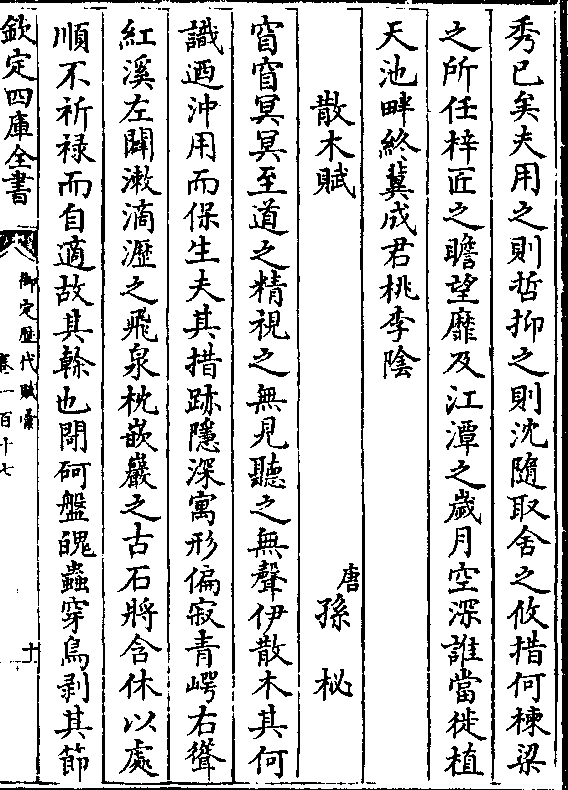 秀已矣夫用之則哲抑之則沈隨取舍之攸措何棟梁
之所任梓匠之瞻望靡及江潭之歲月空深誰當徙植
天池畔終冀成君桃李陰
散木賦
唐 孫 柲
窅窅冥冥至道之精視之無見聽之無聲伊散木其何
識迺沖用而保生夫其措跡隱深寓形偏寂青崿右聳
紅溪左闢漱滴瀝之飛泉枕嵌巖之古石將含休以處
順不祈禄而自適故其榦也閜砢盤磈蟲穿鳥剥其節
欽定四庫全書
御定歴代賦彙
卷一百十七
十